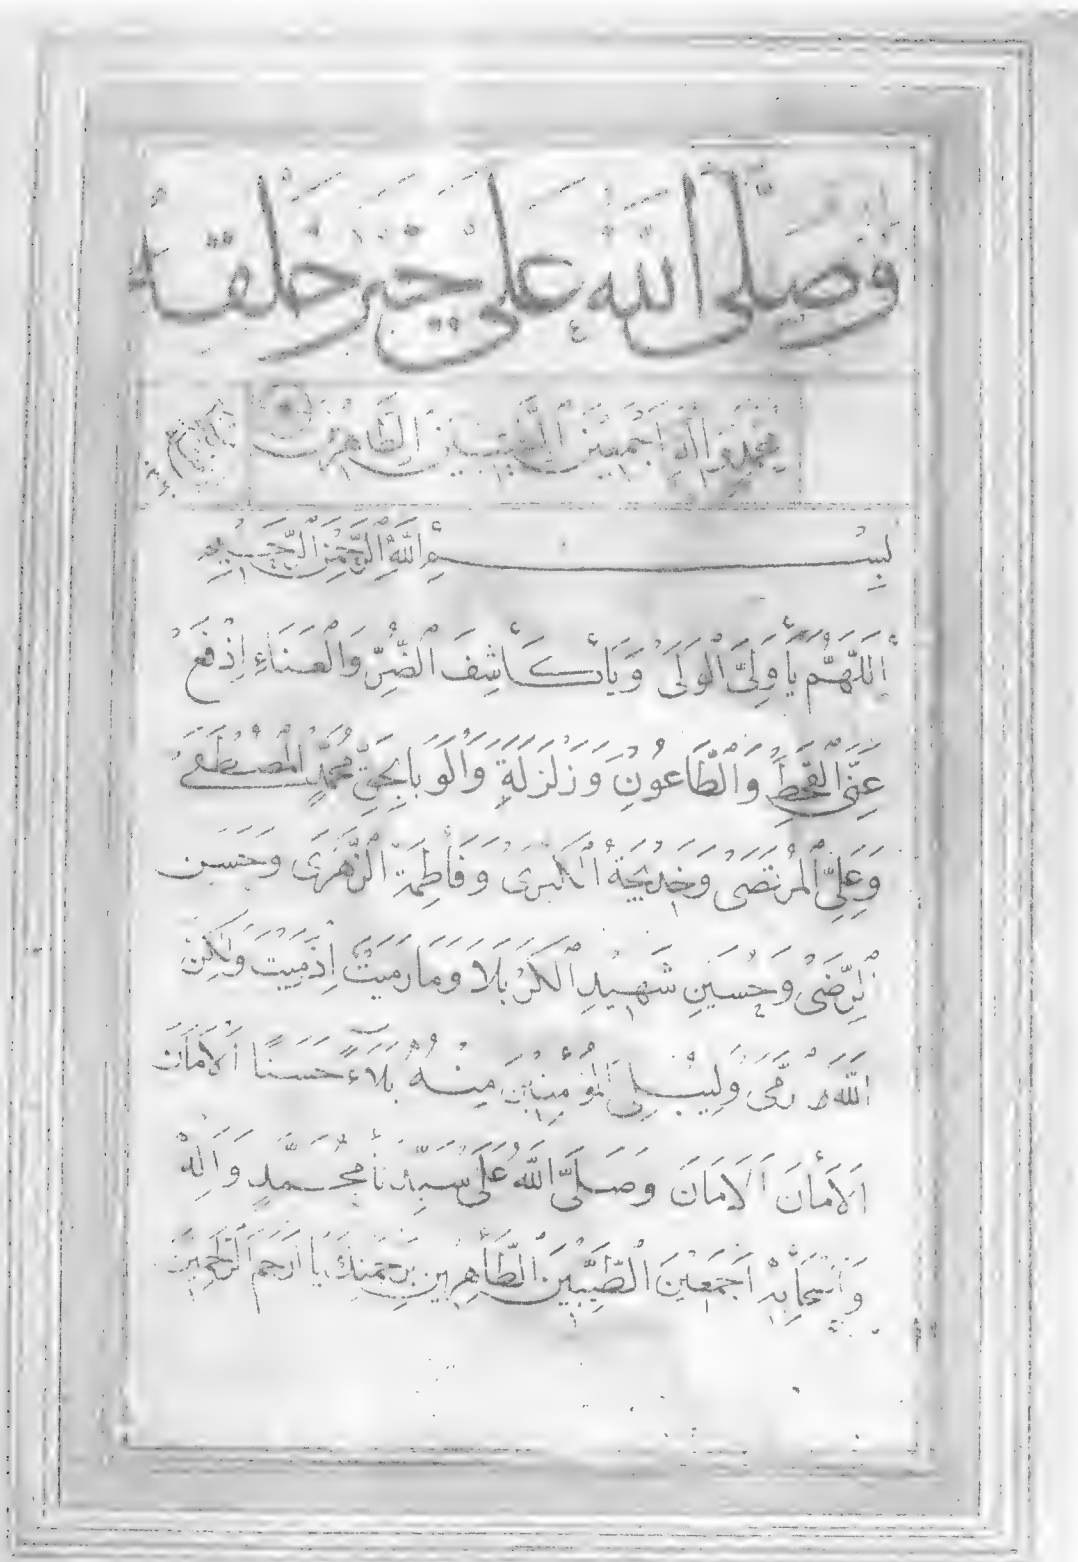 فَصَلَّى اللّٰهُ عَلٰى خَيْرِ خَلْقِهٖ
مُحَمَّدٍ وَاٰلِهٖ اَجْمَعِيْنَ الطَّيِّبِيْنَ الطَّاهِرِيْنَ
بِسْمِ اللّٰهِ الرَّحْمٰنِ الرَّحِيْمِ
اَللّٰهُمَّ يَا وَلِىَّ الْوَلٰى وَيَا كَاشِفَ الضُّرِّ وَالْعَنَاءِ اِدْفَعْ
عَنِّى الْقَحْطَ وَالطَّاعُوْنَ وَزَلْزَلَةٍ وَالْوَبَا بِحَقِّ مُحَمَّدٍ الْمُصْطَفٰى
وَعَلِىِّ الْمُرْتَضٰى وَخَدِيْجَةَ الْكُبْرٰى وَفَاطِمَةَ الزَّهْرٰى وَحَسَنِ
الرِّضٰى وَحُسَيْنِ شَهِيْدِ الْكَرْبَلَا وَمَا رَمَيْتَ اِذْ رَمَيْتَ وَلٰكِنَّ
اللّٰهَ رَمٰى وَلِيُبْلِىَ الْمُؤْمِنِيْنَ مِنْهُ بَلَآءً حَسَنًا اَلْاَمَانَ
اَلْاَمَانَ اَلْاَمَانَ وَصَلَّى اللّٰهُ عَلٰى سَيِّدِنَا مُحَمَّدٍ وَاٰلِهٖ
وَاَصْحَابِهٖ اَجْمَعِيْنَ الطَّيِّبِيْنَ الطَّاهِرِيْنَ بِرَحْمَتِكَ يَا اَرْحَمَ الرَّاحِمِيْنَ